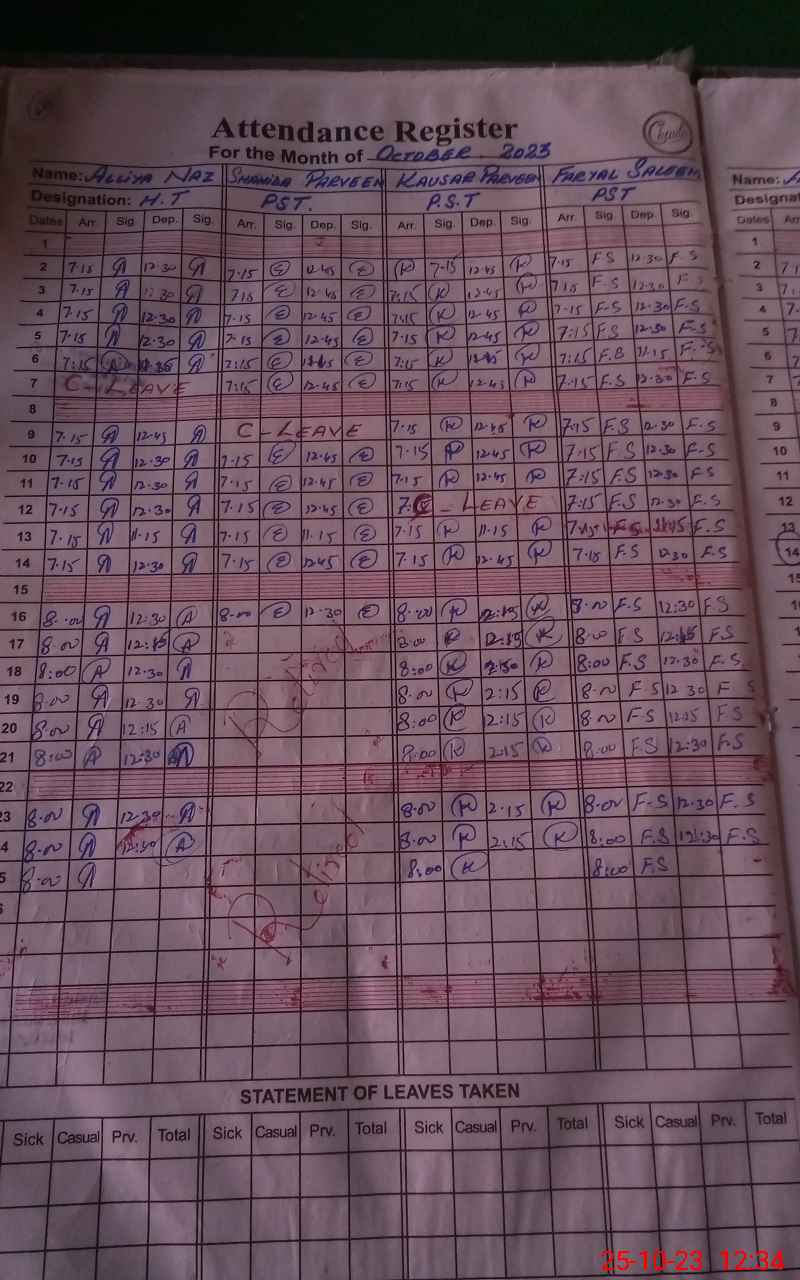 Attendance Register
For the Month of October. 2023
Name: Alliya Naz Shahida Parveen Kausar Parveen Faryal Saleem
Designation: H.T PST. P.S.T PST
Dates Arr. Sig. Dep. Sig. Arr. Sig. Dep. Sig. Arr. Sig. Dep. Sig. Arr. Sig. Dep. Sig.
1
2 7.15 12.30 7.15 E 12.45 E K 7.15 12.45 K 7.15 F S 12.30 F.S
3 7.15 12.30 7.15 E 12.45 E 7.15 K 12.45 K 7.15 F.S 12.30 F.S
4 7.15 12.30 7.15 E 12.45 E 7.15 K 12.45 K 7.15 F.S 12.30 F.S
5 7.15 12.30 7.15 E 12.45 E 7.15 K 12.45 K 7:15 F.S 12.30 F.S
6 7:15 7:15 E E 7:15 K K 7:15 11.15
7 C-LEAVE 7:15 E 12.45 E 7.15 K 12.45 K 7.15 F.S 12.30 F.S
8
9 7.15 12.45 C-LEAVE 7.15 K 12.45 K 7.15 F.S 12.30 F.S
10 7.15 12.30 7.15 E 12.45 E 7.15 K 12.45 K 7:15 F S 12.30 F-S
11 7.15 12.30 7.15 E 12.45 E 7.15 K 12.45 K 7:15 F.S 12.30 F.S
12 7.15 12.30 7.15 E 12.45 E C-LEAVE 7:15 F.S 12.30 F.S
13 7.15 11.15 7.15 E 11.15 E 7.15 K 11.15 K F.S
14 7.15 12.30 7.15 E 12.45 E 7.15 K 12.45 K 7.15 F.S 12.30 F.S
15
16 8.00 12.30 A 8.00 E 12.30 E 8.00 K K 8.00 F.S 12:30 F.S
17 8.00 A 8.00 K K 8.00 F S F.S
18 8:00 A 12.30 Retired 8:00 K K 8:00 F.S 12.30 F.S
19 8.00 12.30 8.00 K 2:15 K 8.00 F S 12 30 F S
20 8.00 12:15 A 8:00 K 2:15 K 8.00 F-S F S
21 8:00 A 12:30 8.00 K 2.15 K 8.00 F.S 12:30 F.S
22
23 8.00 12.30 8.00 K 2.15 K 8.00 F-S 12.30 F.S
4 8.00 12:30 A Retired 8.00 K 2:15 K 8:00 F.S 12:30 F.S
5 8.00 8:00 K 8:00 F.S
STATEMENT OF LEAVES TAKEN
Sick Casual Prv. Total Sick Casual Prv. Total Sick Casual Prv. Total Sick Casual Prv. Total
Name:
Designat
Dates Arr
1
2
3
4
5
6
7
8
9
10
11
12
13
14
15
25-10-23 12:34